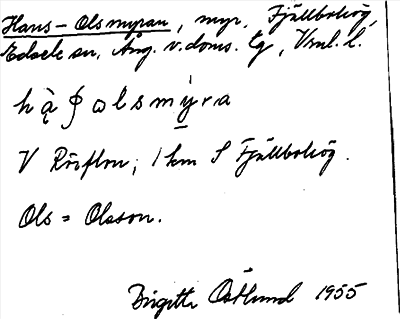 Hans-Olsmyran, myr, Fjällbohög,
Edsele sn, Ång. v. doms. tg, Vnl. l.
V Rörflon, 1 km S Fjällbohög.
Ols = Olsson.
Birgitta Östlund 1955